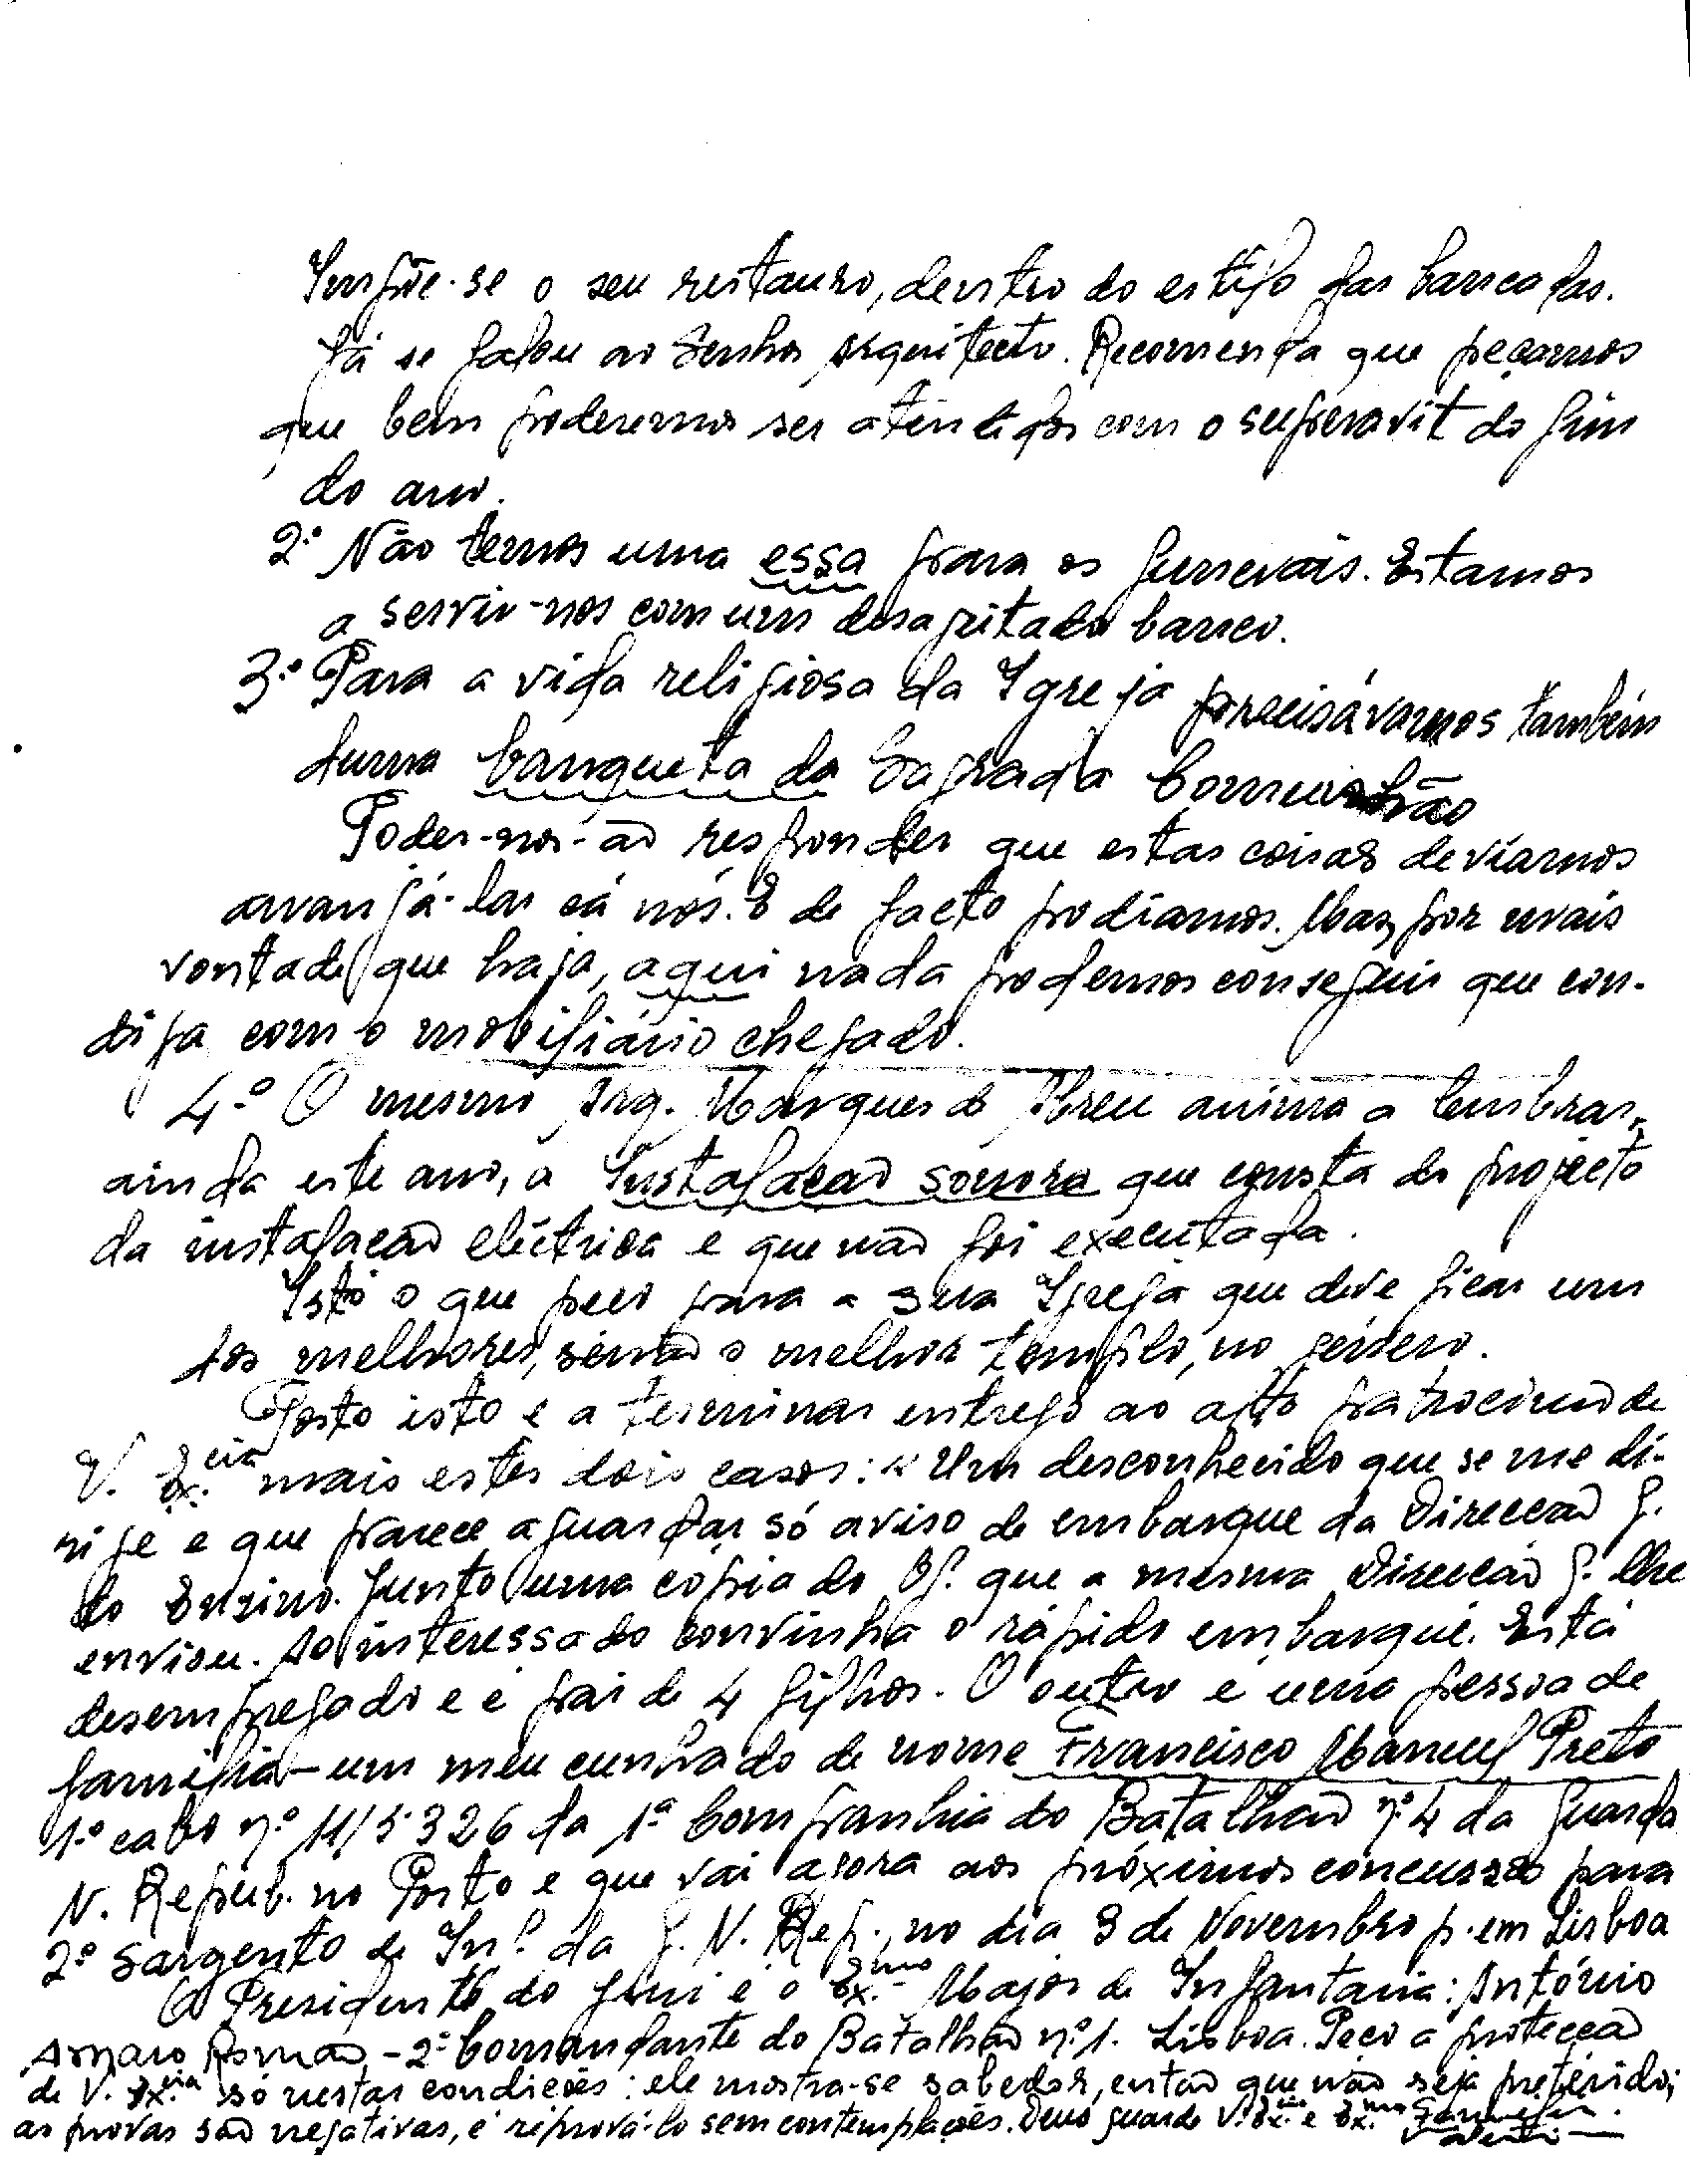 Impõe-se o seu restauro, dentro do estilo das bancadas.
Já se falou ao Senhor Arquitecto. Recomenda que peçamos
que bem poderemos ser atendidos com o superavit do fim
do ano.
2.º Não temos uma essa para os funerais. Estamos
a servir-nos com um desajeitado banco.
3.º Para a vida religiosa da Igreja precisávamos também
duma banqueta da Sagrada Comunhão
Poder-nos-ão responder que estas coisas devíamos
arranjá-las cá nós. E de facto podíamos. Mas, por mais
vontade que haja, aqui nada podemos conseguir que con-
diga com o mobiliário chegado.
4.º O mesmo Arq. Marques de Abreu anima a lembrar,
ainda este ano, a Instalação sonora que consta do projecto
da instalação eléctrica e que não foi executada.
Isto o que peço para a sua Igreja que deve ficar um
dos melhores, senão o melhor templo, no género.
Posto isto e a terminar entrego ao alto patrocínio de
V. Ex.cia mais estes dois casos: Um desconhecido que se me di-
rige e que parece aguardar só aviso de embarque da Direcção G.
do Ensino. Junto uma cópia do Of. que a mesma Direcção G. lhe
enviou. Ao interessado convinha o rápido embarque. Está
desempregado e é pai de 4 filhos. O outro é uma pessoa de
família - um meu cunhado de nome Francisco Manuel Preto
1.º cabo n.º 11/5326 da 1.ª Companhia do Batalhão n.º 4 da Guarda
N. Repub. no Porto e que vai agora aos próximos concursos para
2.º sargento de Inf. da G. N. Rep., no dia 3 de Novembro p. em Lisboa
O Presidente do Juri é o Ex.mo Major de Infantaria: António
Amaro Romão - 2.º Comandante do Batalhão n.º 1. Lisboa. Peço a protecção
de V. Ex.cia só nestas condições: ele mostra-se sabedor, então que não seja preterido;
as provas são negativas, é reprová-lo sem contemplações. Deus guarde V. Ex.cia e Ex.ma Família.